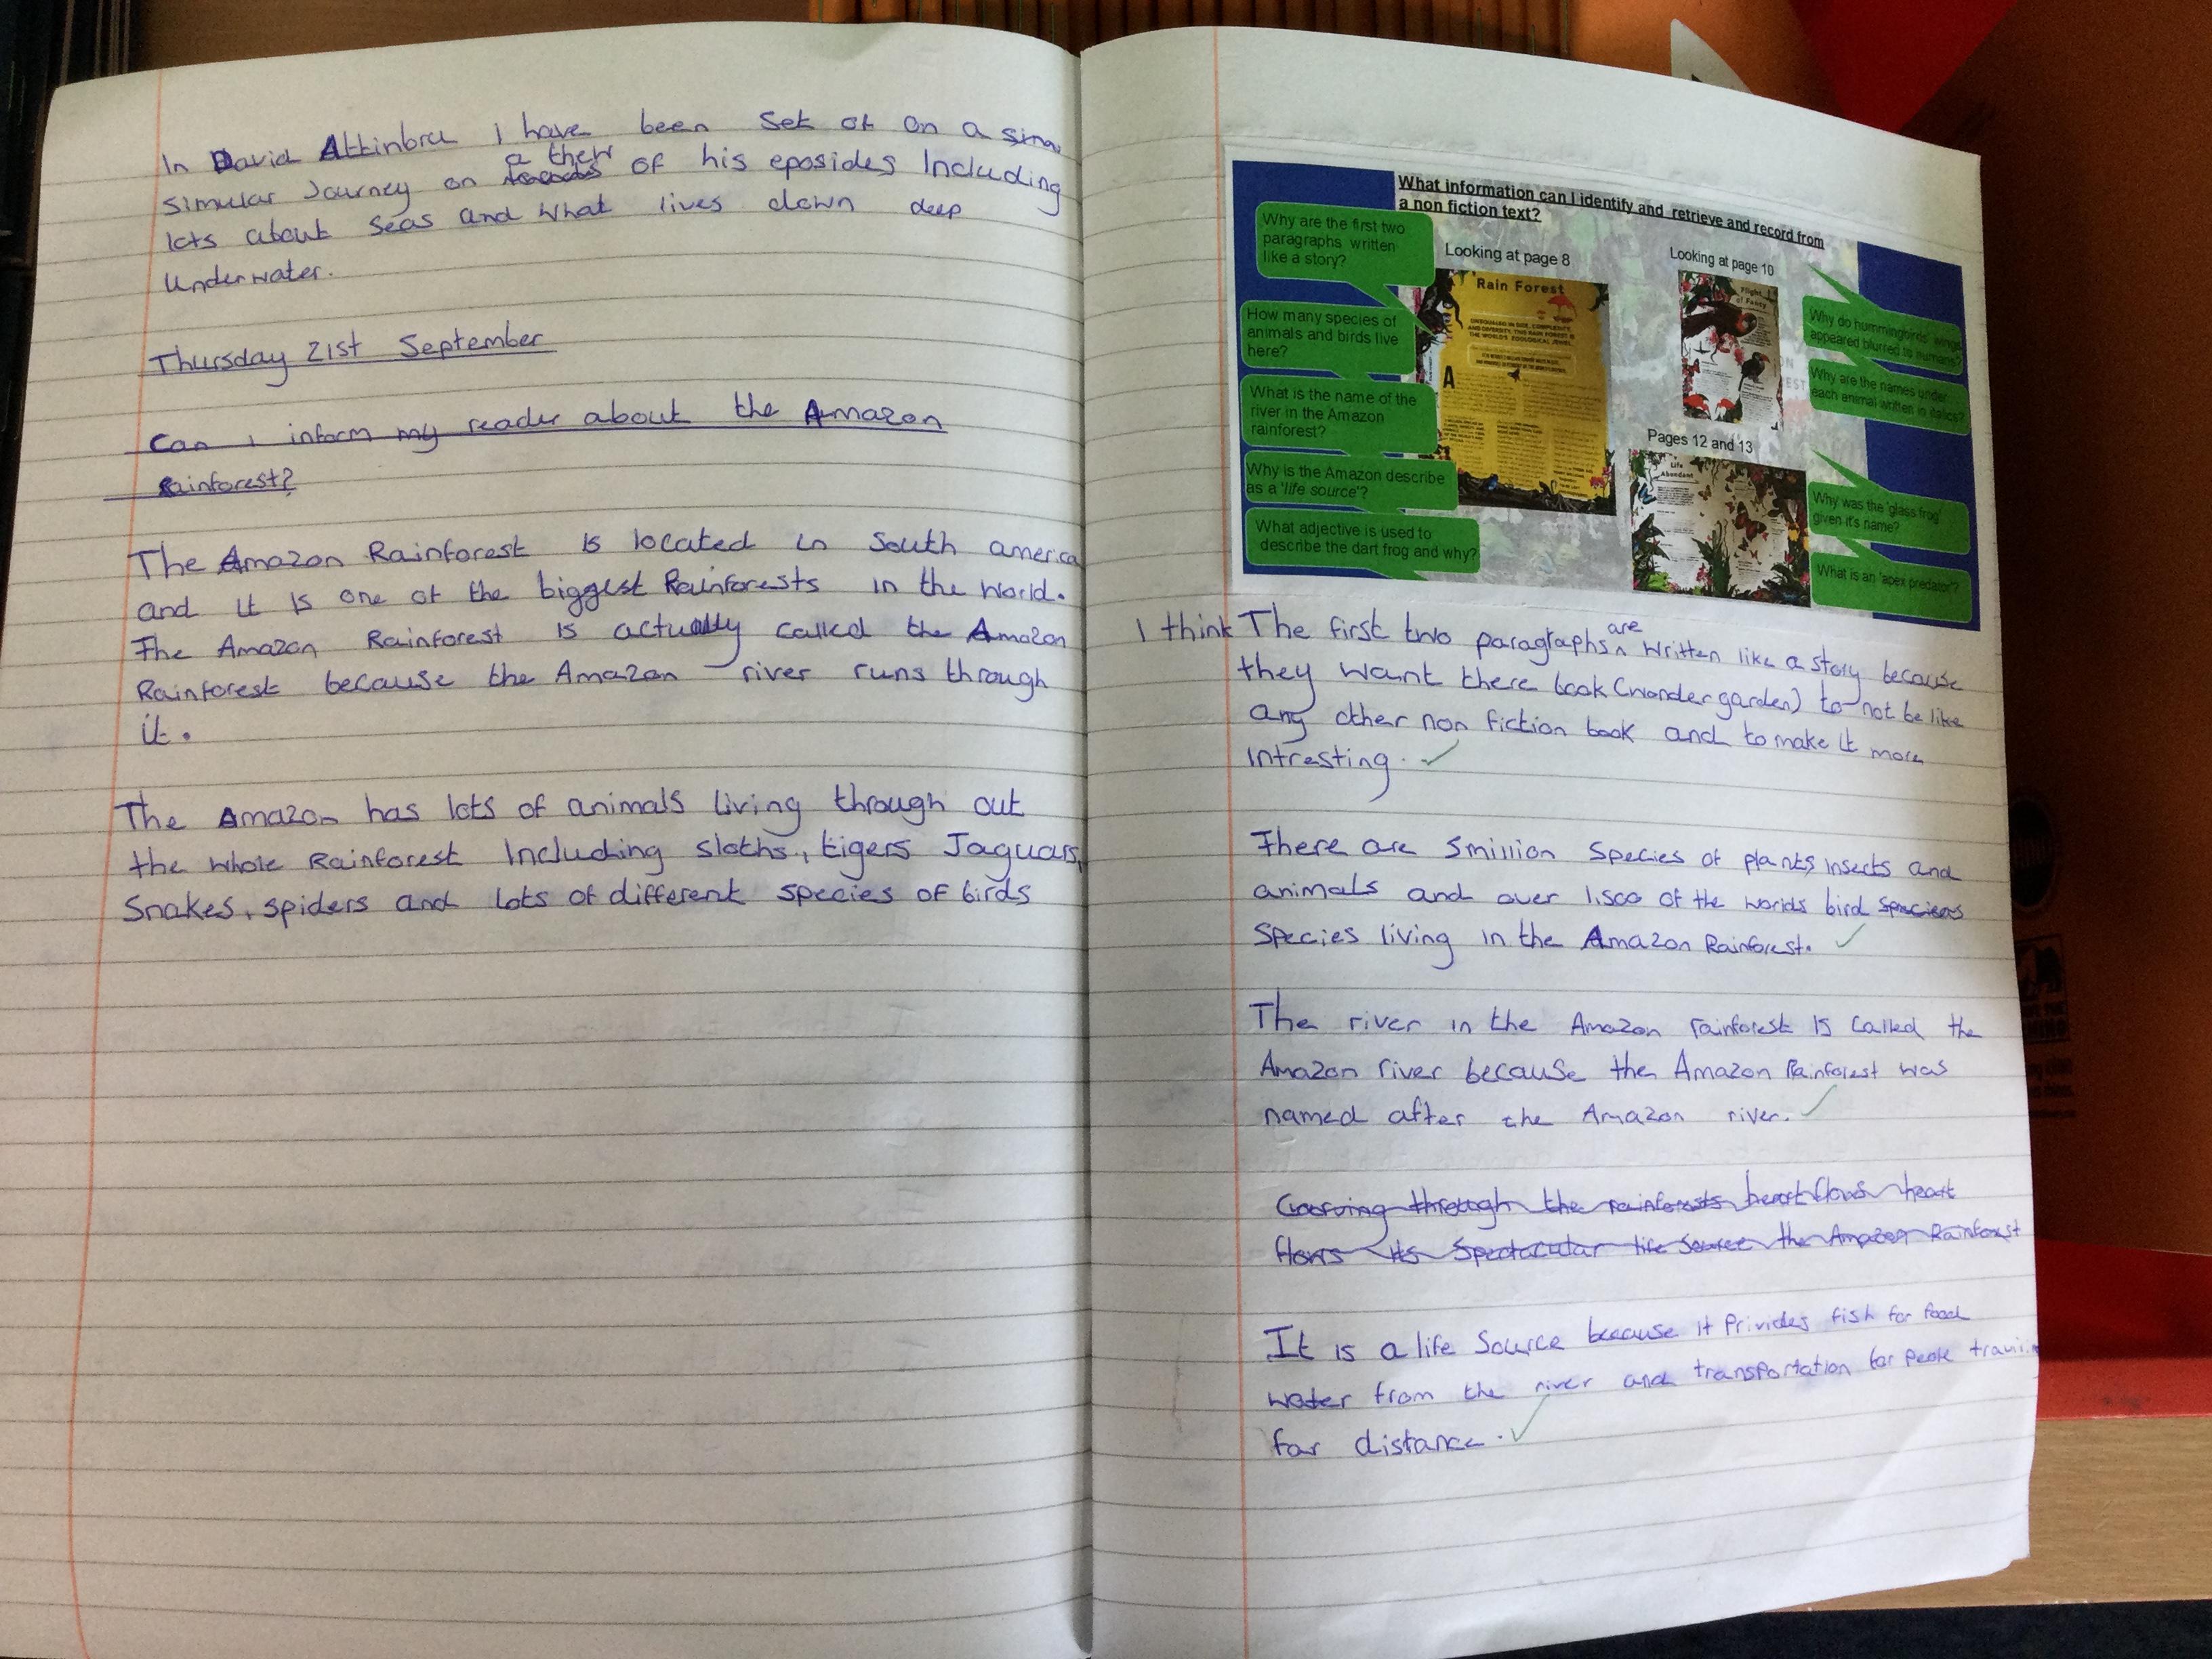 In David Attinbra I have been set of on a
simular Journey on a ther of his eposides Including
lots about seas and what lives down deep
Underwater.
Thursday 21st September
Can i inform my reader about the Amazon
Rainforest?
The Amazon Rainforest is located in South america
and it is one of the biggest Rainforests in the world.
The Amazon Rainforest is actually called the Amazon
Rainforest because the Amazon river runs through
it.
The Amazon has lots of animals living through out
the whole Rainforest Including sloths, tigers Jaguars,
Snakes, spiders and lots of different species of birds
What information can I identify and retrieve and record from
a non fiction text?
Why are the first two
paragraphs written
like a story?
How many species of
animals and birds live
here?
What is the name of the
river in the Amazon
rainforest?
Why is the Amazon describe
as a 'life source'?
What adjective is used to
describe the dart frog and why?
Looking at page 8
Rain Forest
UNBOUNDED IN SIZE, COMPLEXITY,
AND DIVERSITY, THIS RAIN FOREST IS
THE WORLD'S ZOOLOGICAL JEWEL
A
Looking at page 10
Flight
of Fancy
Pages 12 and 13
Life
Abundant
Why do hummingbirds' wings
appeared blurred to humans?
Why are the names under
each animal written in italics?
Why was the 'glass frog'
given it's name?
What is an 'apex predator'?
I think The first two paragraphs are written like a story because
they want there book (wonder garden) to not be like
any other non fiction book and to make it more
intresting.
There are 5million species of plants, insects and
animals and over 1,500 of the worlds bird
species living in the Amazon Rainforest.
The river in the Amazon rainforest is called the
Amazon river because the Amazon Rainforest was
named after the Amazon river.
through the rainforests heart flows heart
flows its Spectacular life source the Amazon Rainforest
It is a life source because it Privides fish for food
water from the river and transportation for
far distance.